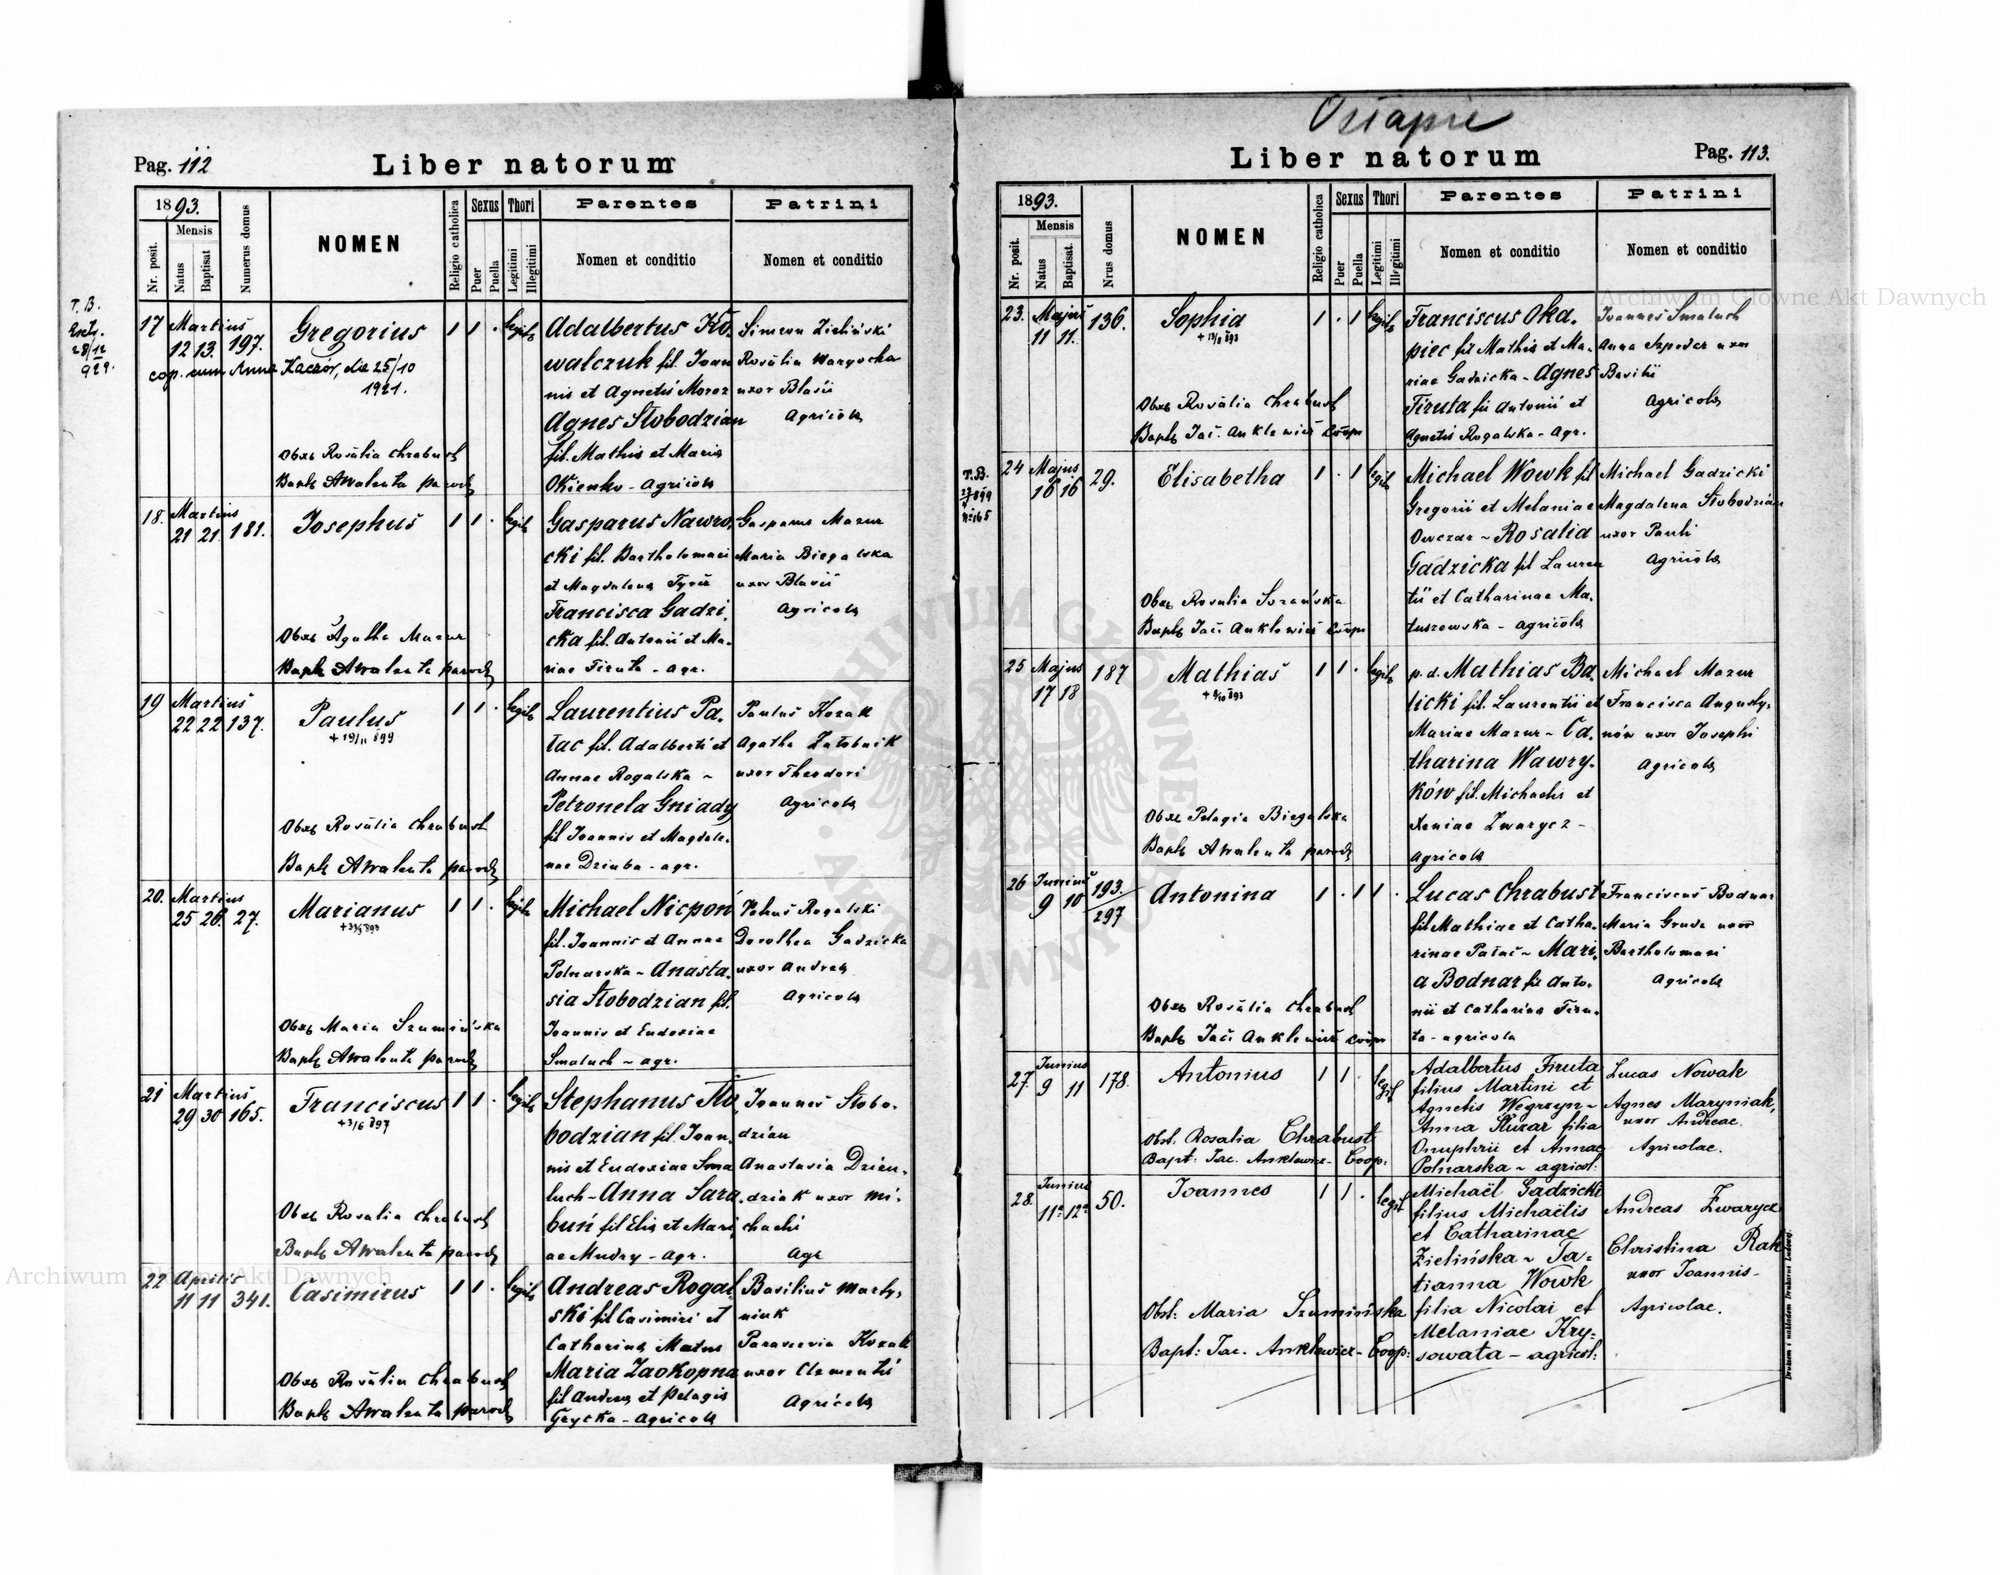 Pag. 112
Liber natorum
1893.
Mensis
Nr. posit.
Natus
Baptisat
Numerus domus
NOMEN
Religio catholica
Sexus
Puer
Puella
Thori
Legitimi
Illegitimi
Parentes
Nomen et conditio
Patrini
Nomen et conditio
T. B.
28/12
929.
17
Martius
12 13.
197.
Gregorius
1 1 .
legit
cop. cum Anna Kaczór, die 25/10
1921.
Obst Rosalia Chrabust
Bapt Awalenta paroch
Adalbertus Ko,
walczuk fil. Joan
nis et Agnetis Moroz
Agnes Słobodzian
fil. Mathis et Maria
Okienko - agricola
Simeon Zieliński
Rosalia
uxor Blasii
Agricola
18.
Martius
21 21
181.
Josephus
1 1 .
legit
Obst Agatha Mazur
Bapt Awalenta paroch
Gasparus Nawro,
cki fil. Bartholomaei
et Magdalena
Francisca Gadzi,
cka fil. Antonii et Ma,
riae Firuta - agr.
Gasparus Mazur
Maria Biegalska
uxor Blasii
Agricola
19
Martius
22 22
137.
Paulus
+ 19/11 899
1 1 .
legit
Obst Rosalia Chrabust
Bapt Awalenta paroch
Laurentius Pa,
łac fil. Adalberti et
Annae Rogalska ~
Petronela Gniady
fil Joannis et Magdale,
nae Dziuba - agr.
Paulus Kozak
Agatha
uxor Theodori
Agricola
20.
Martius
25 26.
27.
Marianus
1 1 .
legit
Obst Maria Szumińska
Bapt Awalenta paroch
Michael Nicpoń
fil. Joannis et Annae
Polnarska ~ Anasta,
sia Słobodzian fil.
Joannis et Eudoxiae
Smaluch ~ agr.
Petrus Rogalski
Dorothea Gadzicka
uxor Andreae
Agricola
21
Martius
29 30
165.
Franciscus
+ 3/6 897
1 1 .
legit
Obst Rosalia Chrabust
Bapt Awalenta paroch
Stephanus Sło,
bodzian fil. Joan,
nis et Eudoxiae Sma
luch ~ Anna Sara,
buń fil Elis et Mari
ae Mudry - agr.
Joannes Słobo,
dzian
Anastasia Dzien,
dziak uxor Mi,
chaeli
Agr
22
Aprilis
11 11
341.
Casimirus
1 1 .
legit
Obst Rosalia Chrabust
Bapt Awalenta paroch
Andreas Rogal,
ski fil Casimiri et
Catharina Matus
Maria Zaokopna
fil Andreae et Pelagis
Grycka - Agricola
Basilius Marty,
niuk
Parascevia Kozak
uxor Clementii
Agricola
Osiapie
Liber natorum
Pag. 113.
1893.
Mensis
Nr. posit.
Natus
Baptisat.
Nrus domus
NOMEN
Religio catholica
Sexus
Puer
Puella
Thori
Legitimi
Illegitimi
Parentes
Nomen et conditio
Patrini
Nomen et conditio
23.
Majus
11 11.
136.
Sophia
1 . 1
legit
Obst Rosalia Chrabust
Bapt Jac. Anklewicz Coop
Franciscus Oka,
piec fil Mathis et Ma,
riae Gadzicka - Agnes
Firuta fil Antonii et
Agnetis Rogalska - Agr.
Joannes Smaluch
Anna Szpedar uxor
Basilii
Agricola
T. B.
24
Majus
16 16
29.
Elisabetha
1 . 1
legit
Obst Rosalia
Bapt Jac Anklewicz Coop
Michael Wowk fil
Gregorii et Melaniae
Owczar ~ Rosalia
Gadzicka fil Lauren
tii et Catharinae Ma,
tuszewska - agricola
Michael Gadzicki
Magdalena Słobodzian
uxor Pauli
Agricola
25
Majus
17 18
187
Mathias
+ 8/10 893
1 1 .
legit
Obst Pelagia Biegalska
Bapt Awalenta paroch
p. d. Mathias Ba,
licki fil. Laurentii et
Mariae Mazur ~ Ca,
tharina Wawry,
ków fil. Michaelis et
Xeniae Zwarycz -
Agricola
Michael Mazur
Francisca Augusty,
nów uxor Josephi
Agricola
26
Junius
9 10
193.
297
Antonina
1 . 1 1 .
Obst Rosalia Chrabust
Bapt Jac Anklewicz Coop
Lucas Chrabust
fil Mathiae et Catha,
rinae Pałac ~ Mari,
a Bodnar fil Anto,
nii et Catharina Firu,
ta - agricola
Franciscus Bodnar
Maria Gruda uxor
Bartholomaei
Agricola
27.
Junius
9 11
178.
Antonius
1 1
legit
Obst. Rosalia Chrabust
Bapt: Jac. Anklewicz - Coop:
Adalbertus Firuta
filius Martini et
Agnetis Węgrzyn ~
Anna Sluzar filia
Onuphrii et Annae
Polnarska ~ agricol:
Lucas Nowak
Agnes Maryniak,
uxor Andreae
Agricolae.
28.
Junius
11ᵃ 12ᵃ
50.
Joannes
1 1 .
legit
Obst: Maria Szumińska
Bapt: Jac. Anklewicz - Coop:
Michaël Gadzicki
filius Michaëlis
et Catharinae
Zielińska ~ Ta,
tianna Wowk
filia Nicolai et
Melaniae Kry,
sowata - agricol:
Andreas Zwarycz
Christina Rak
uxor Joannis -
Agricolae.
Drukiem i nakładem Drukarni Ludowej.
Archiwum Główne Akt Dawnych
Archiwum Główne Akt Dawnych
ARCHIWUM GŁÓWNE AKT DAWNYCH